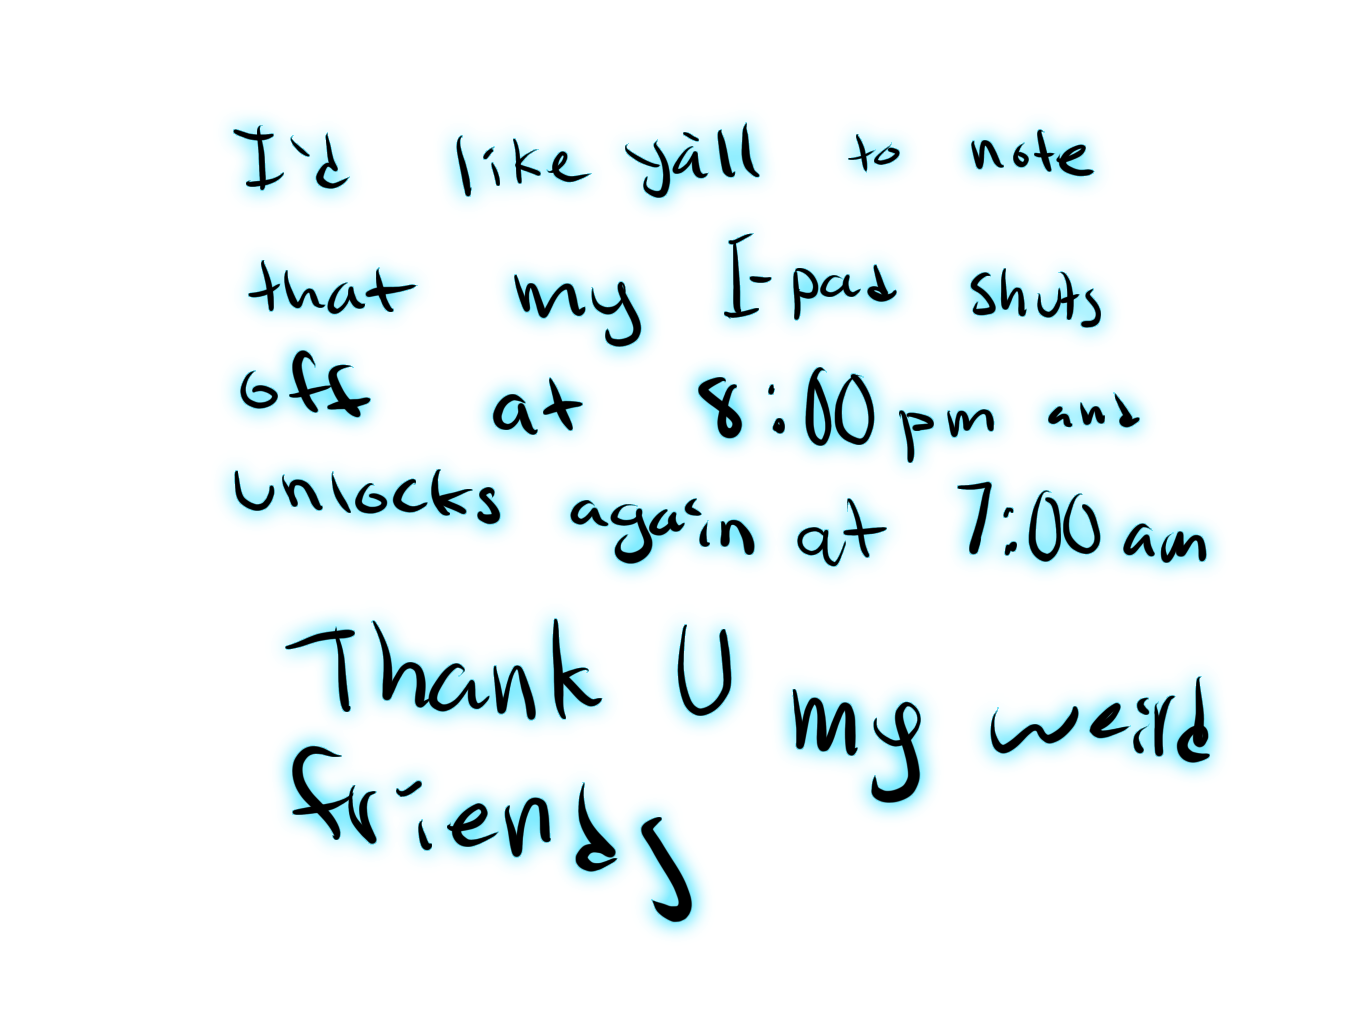 I'd like y'all to note
that my I-pad shuts
off at 8:00 pm and
unlocks again at 7:00 am
Thank U my weird
friends